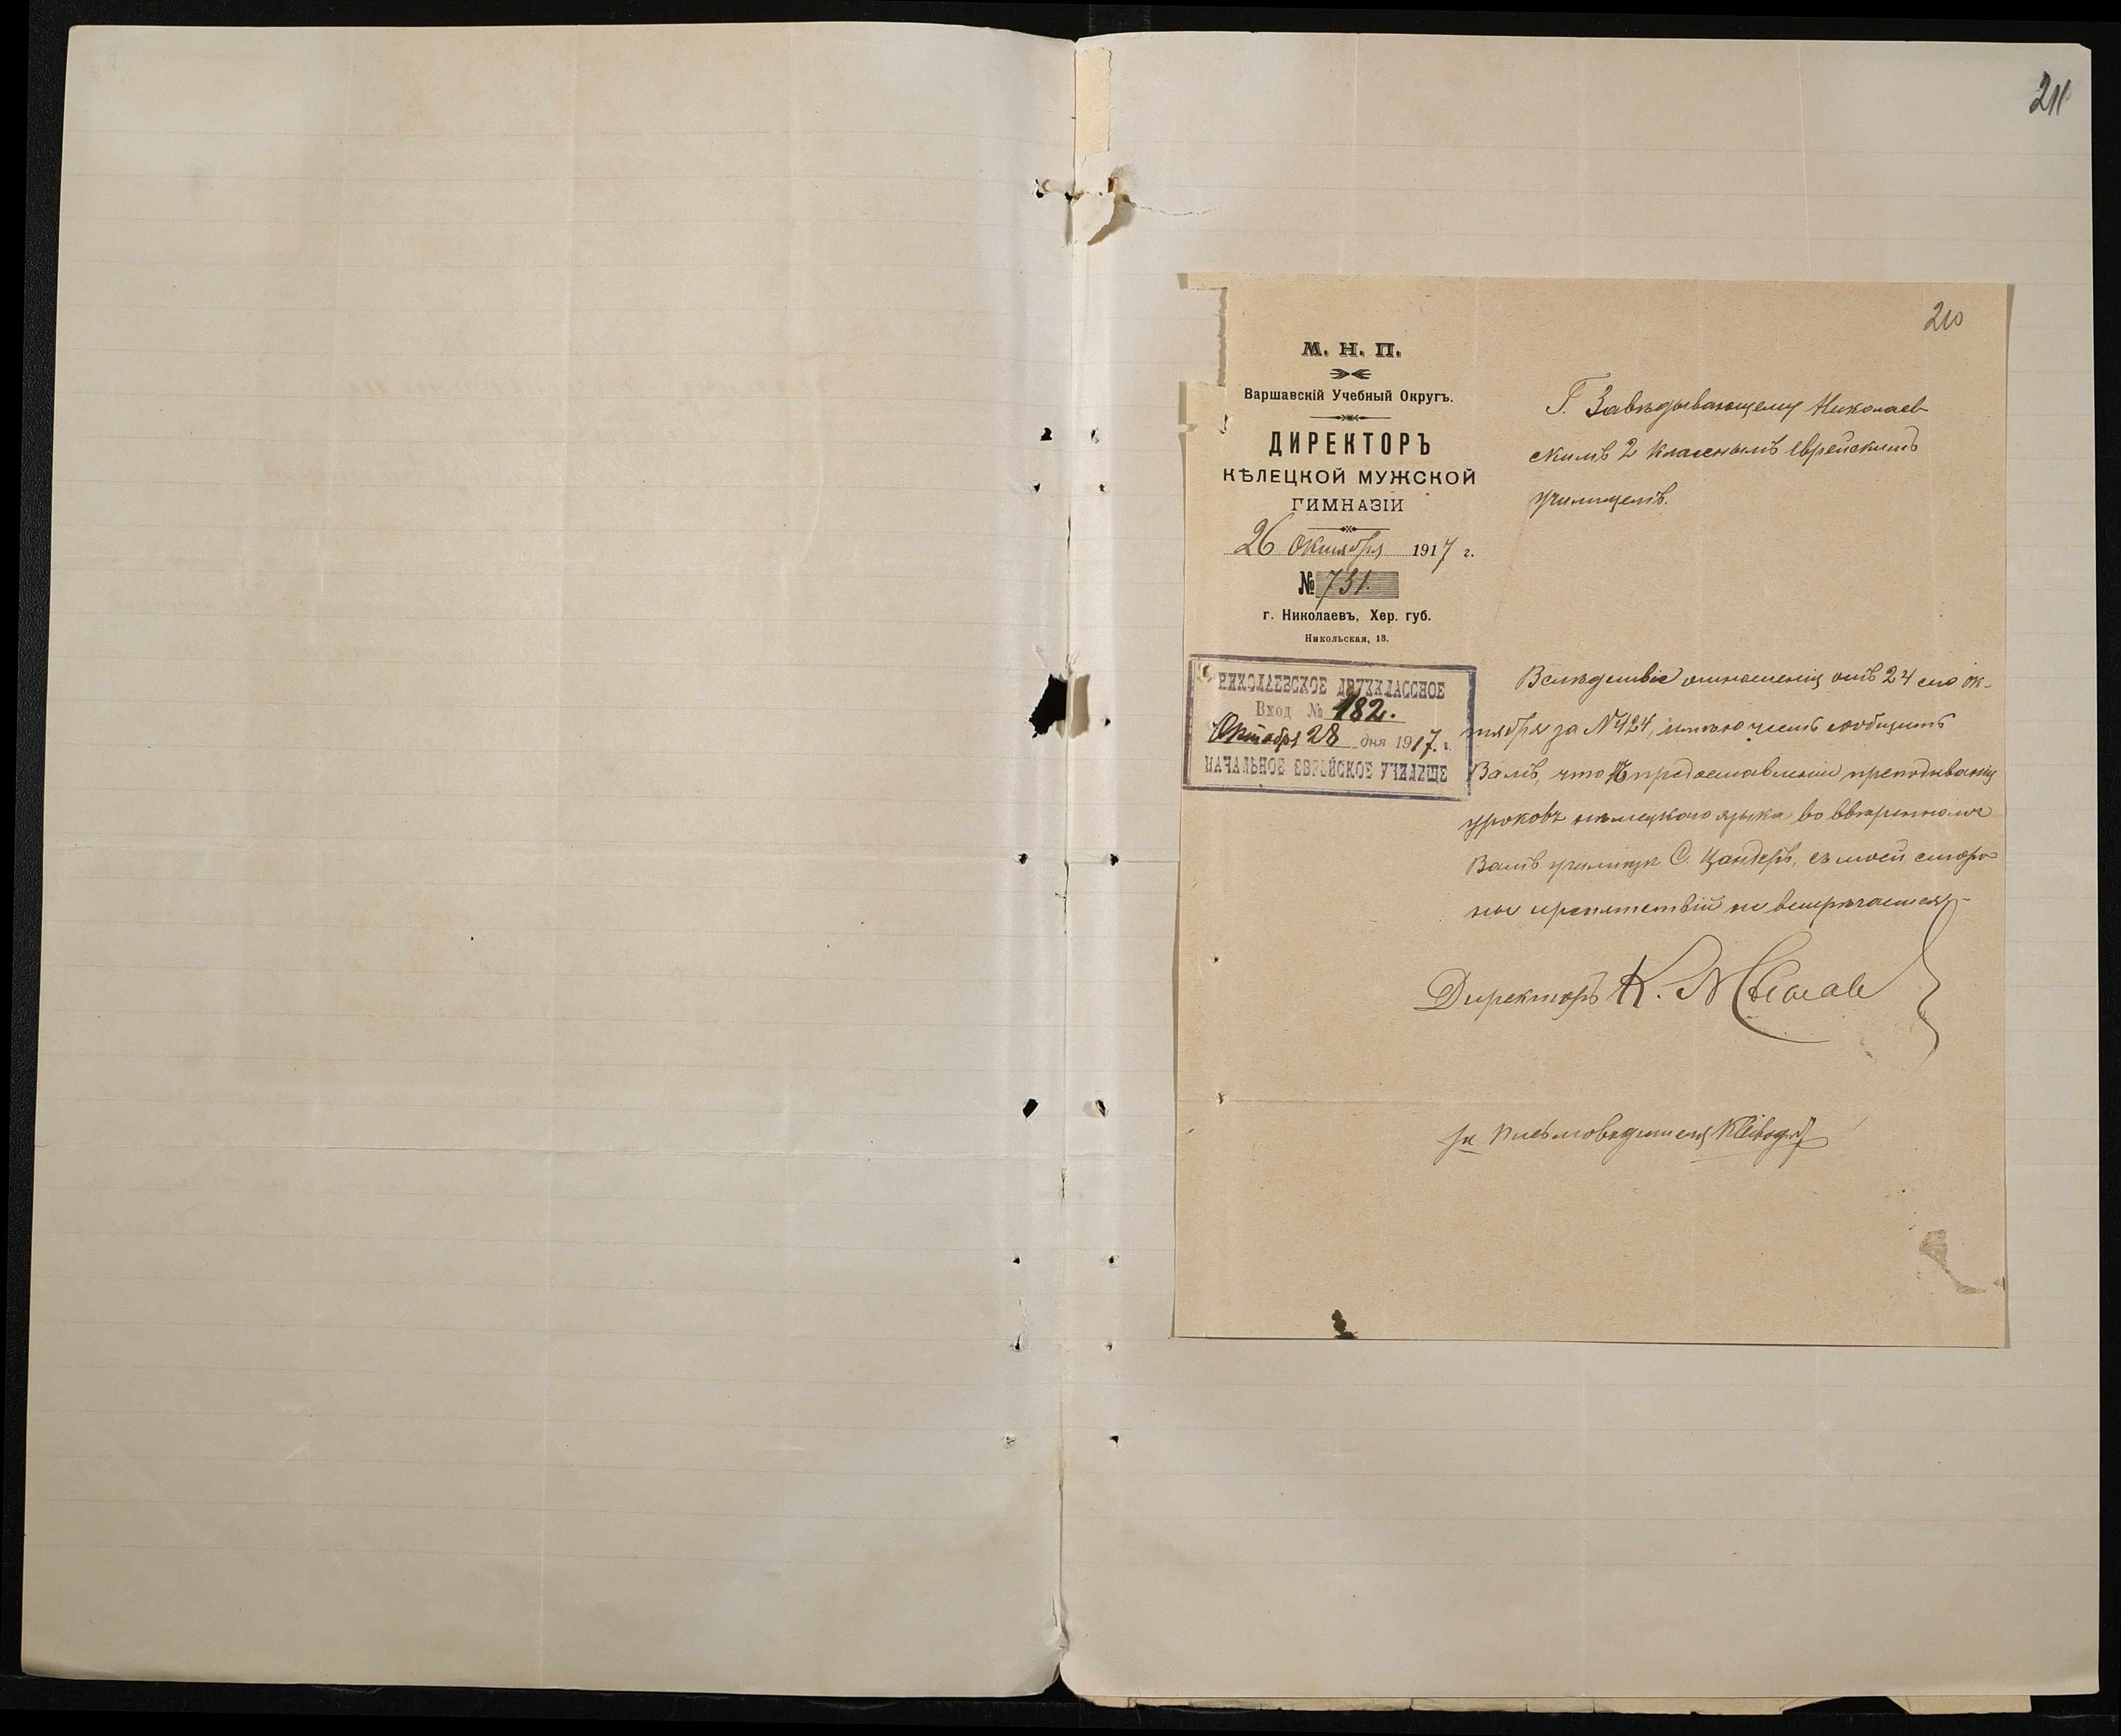 211
210
М. Н. П.
Варшавскій Учебный Округъ.
ДИРЕКТОРЪ
КѢЛЕЦКОЙ МУЖСКОЙ
ГИМНАЗІИ
26 Октября 1917 г.
№ 731.
г. Николаевъ, Хер. губ.
Никольская, 13.
Г. Завѣдывающему Николаев-
скимъ 2 классымъ еврейскимъ
училищемъ.
НИКОЛАЕВСКОЕ ДВУХКЛАССНОЕ
Вход № 182.
Октября 28 дня 1917. г.
НАЧАЛЬНОЕ ЕВРЕЙСКОЕ УЧИЛИЩЕ
Вслѣдствіе отношенія отъ 24 сего ок-
тября за №424, имѣю честь сообщить
Вамъ, что къ предоставленію преподыванія
уроковъ нѣмецкаго языка во ввѣренномъ
Вамъ училищѣ С. Цандеръ, съ моей сторо-
ны препятствій не встрѣчается
Директоръ К.
за письмоводителя